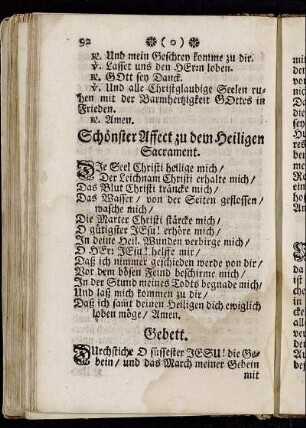 92 ❀ ( o ) ❀
℟. Und mein Geschrey komme zu dir.
℣. Lasset uns den HErrn loben.
℟. GOtt sey Danck.
℣. Und alle Christglaubige Seelen ru-
hen mit der Barmhertzigkeit GOttes in
Frieden.
℟. Amen.
Schönster Affect zu dem Heiligen
Sacrament.
DIe Seel Christi heilige mich/
Der Leichnam Christi erhalte mich/
Das Blut Christi träncke mich/
Das Wasser/ von der Seiten geflossen/
wasche mich/
Die Marter Christi stärcke mich/
O gütigster JEsu! erhöre mich/
In deine Heil. Wunden verbirge mich/
O HErr JEsu! helffe mir/
Daß ich nimmer geschieden werde von dir/
Vor dem bösen Feind beschirme mich/
In der Stund meines Todts begnade mich/
Und laß mich kommen zu dir/
Daß ich samt deinen Heiligen dich ewiglich
loben möge/ Amen.
Gebett.
DUrchstiche O süssester JESU! die Ge-
bein/ und das March meiner Gebein
mit